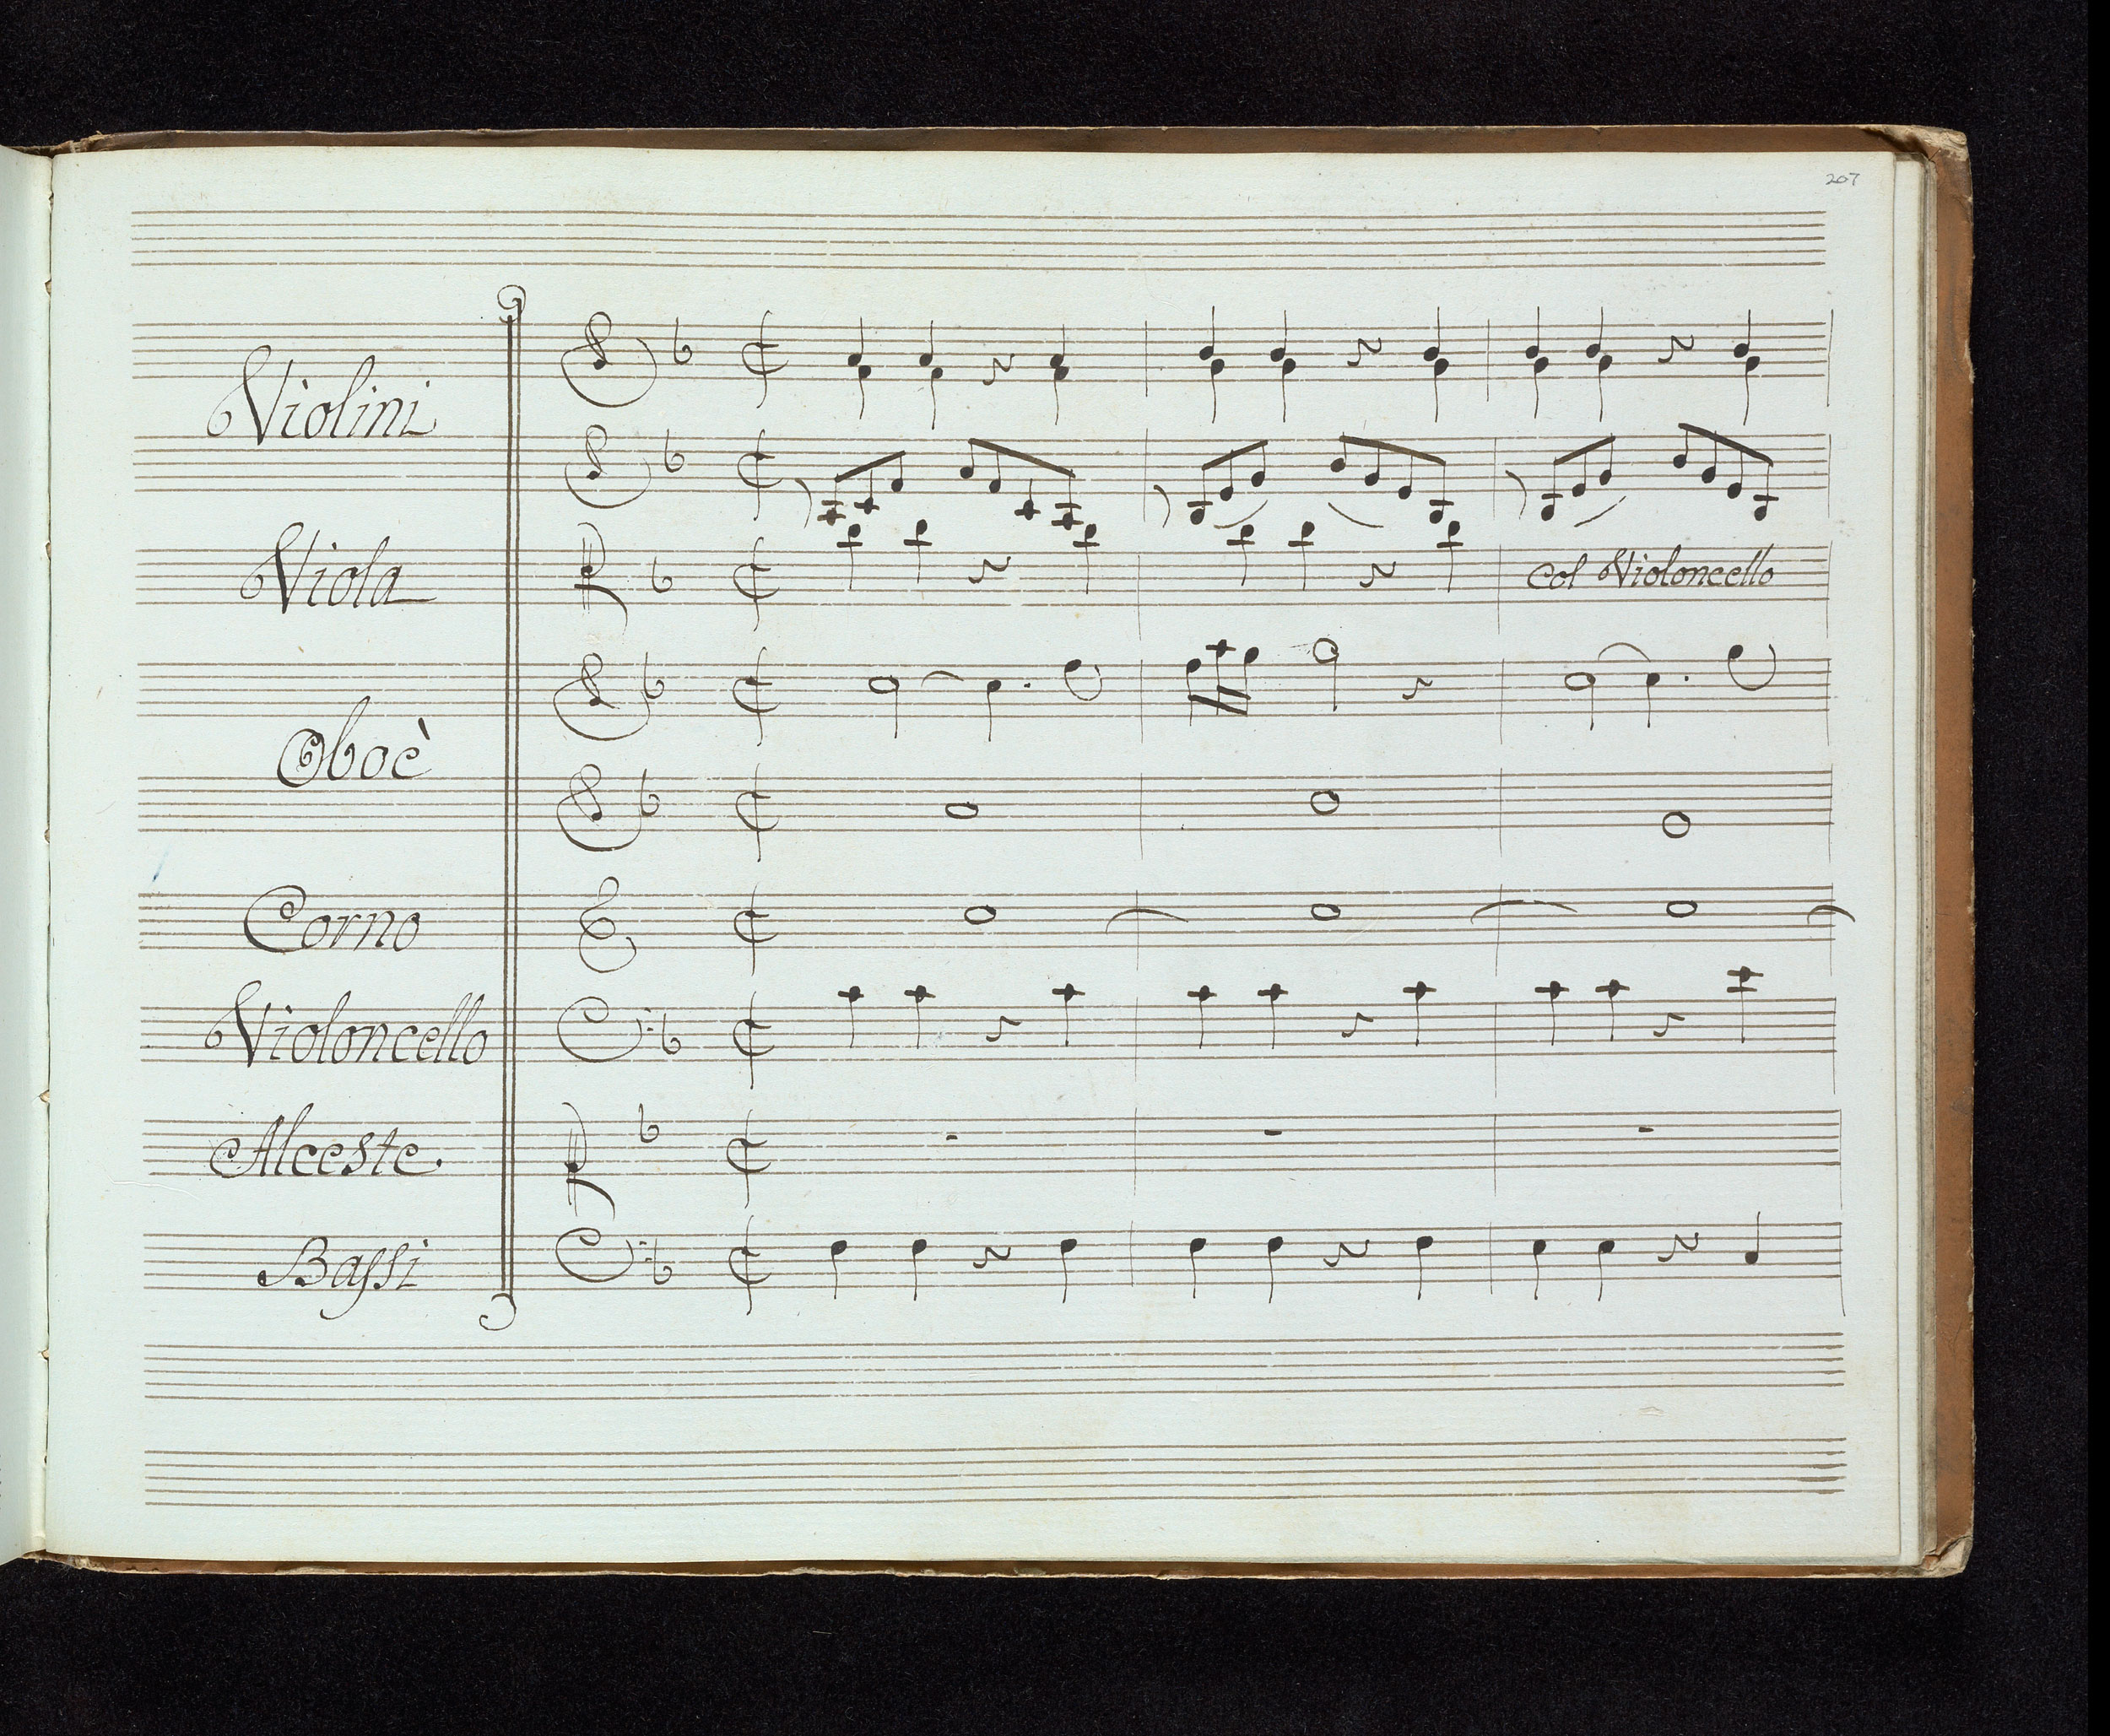 207
Violini
Viola
col Violoncello
Oboè
Corno
Violoncello
Alceste.
Bassi